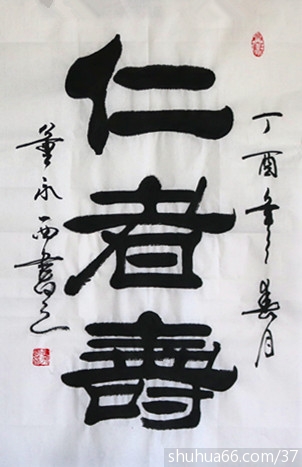 丁酉年春月
仁者壽
董永西書之
shuhua66.com/37